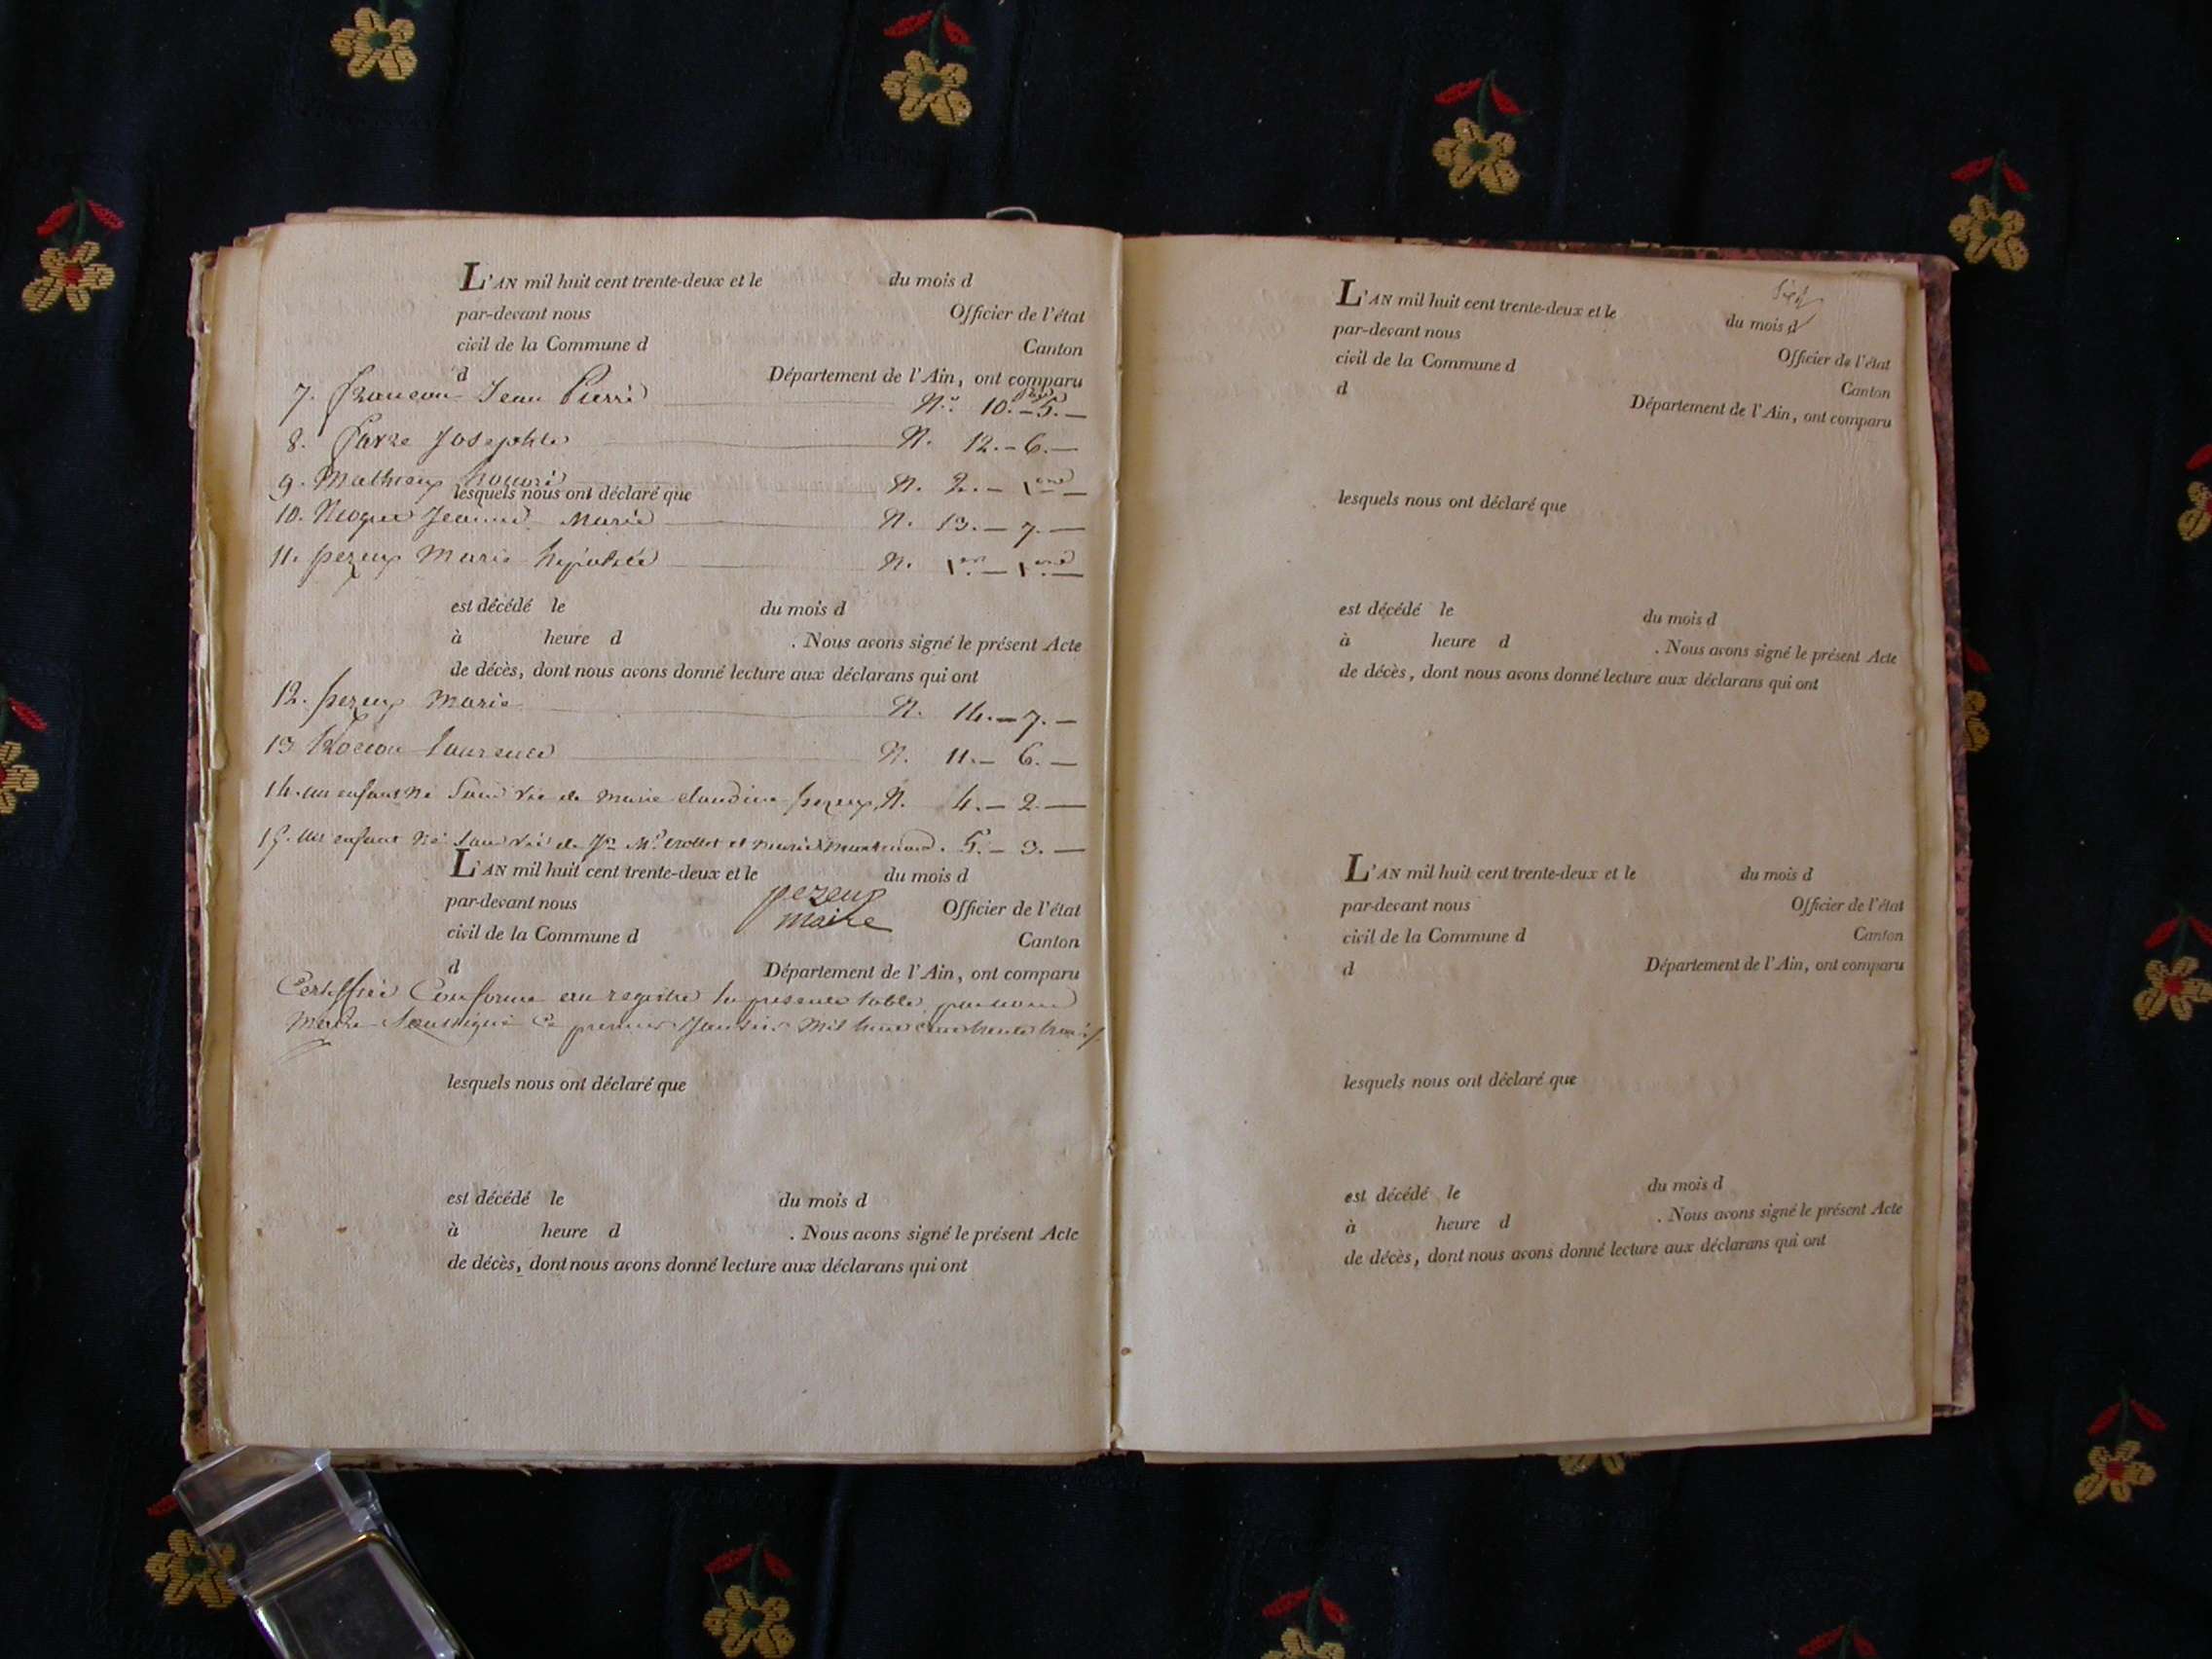 L'AN mil huit cent trente-deux et le du mois d
par-devant nous Officier de l'état
civil de la Commune d Canton
d Département de l'Ain, ont comparu
7. Jean Pierre N.° 10. — 5. —
8. Josephte N. 12. — 6. —
9. Mathieux N. 2. — 1
lesquels nous ont déclaré que
10. Jeanne Marie N. 13. — 7. —
11. pezeux Marie N. 1er — 1
est décédé le du mois d
à heure d . Nous avons signé le présent Acte
de décès, dont nous avons donné lecture aux déclarans qui ont
12. pezeux Marie N. 14. — 7. —
13 Laurence N. 11. — 6. —
14. un enfant né Sans vie de Marie claudine pezeux, N. 4. — 2. —
15. un enfant né Sans vie de et 5. — 3. —
L'AN mil huit cent trente-deux et le du mois d
par-devant nous Officier de l'état
pezeux
maire
civil de la Commune d Canton
d Département de l'Ain, ont comparu
Certiffié Conforme au registre la presente table par nous
Maire Soussigné Ce premier Janvier Mil huit cent trente trois
lesquels nous ont déclaré que
est décédé le du mois d
à heure d . Nous avons signé le présent Acte
de décès, dont nous avons donné lecture aux déclarans qui ont
L'AN mil huit cent trente-deux et le du mois d
par-devant nous Officier de l'état
civil de la Commune d Canton
d Département de l'Ain, ont comparu
lesquels nous ont déclaré que
est décédé le du mois d
à heure d . Nous avons signé le présent Acte
de décès, dont nous avons donné lecture aux déclarans qui ont
L'AN mil huit cent trente-deux et le du mois d
par-devant nous Officier de l'état
civil de la Commune d Canton
d Département de l'Ain, ont comparu
lesquels nous ont déclaré que
est décédé le du mois d
à heure d . Nous avons signé le présent Acte
de décès, dont nous avons donné lecture aux déclarans qui ont